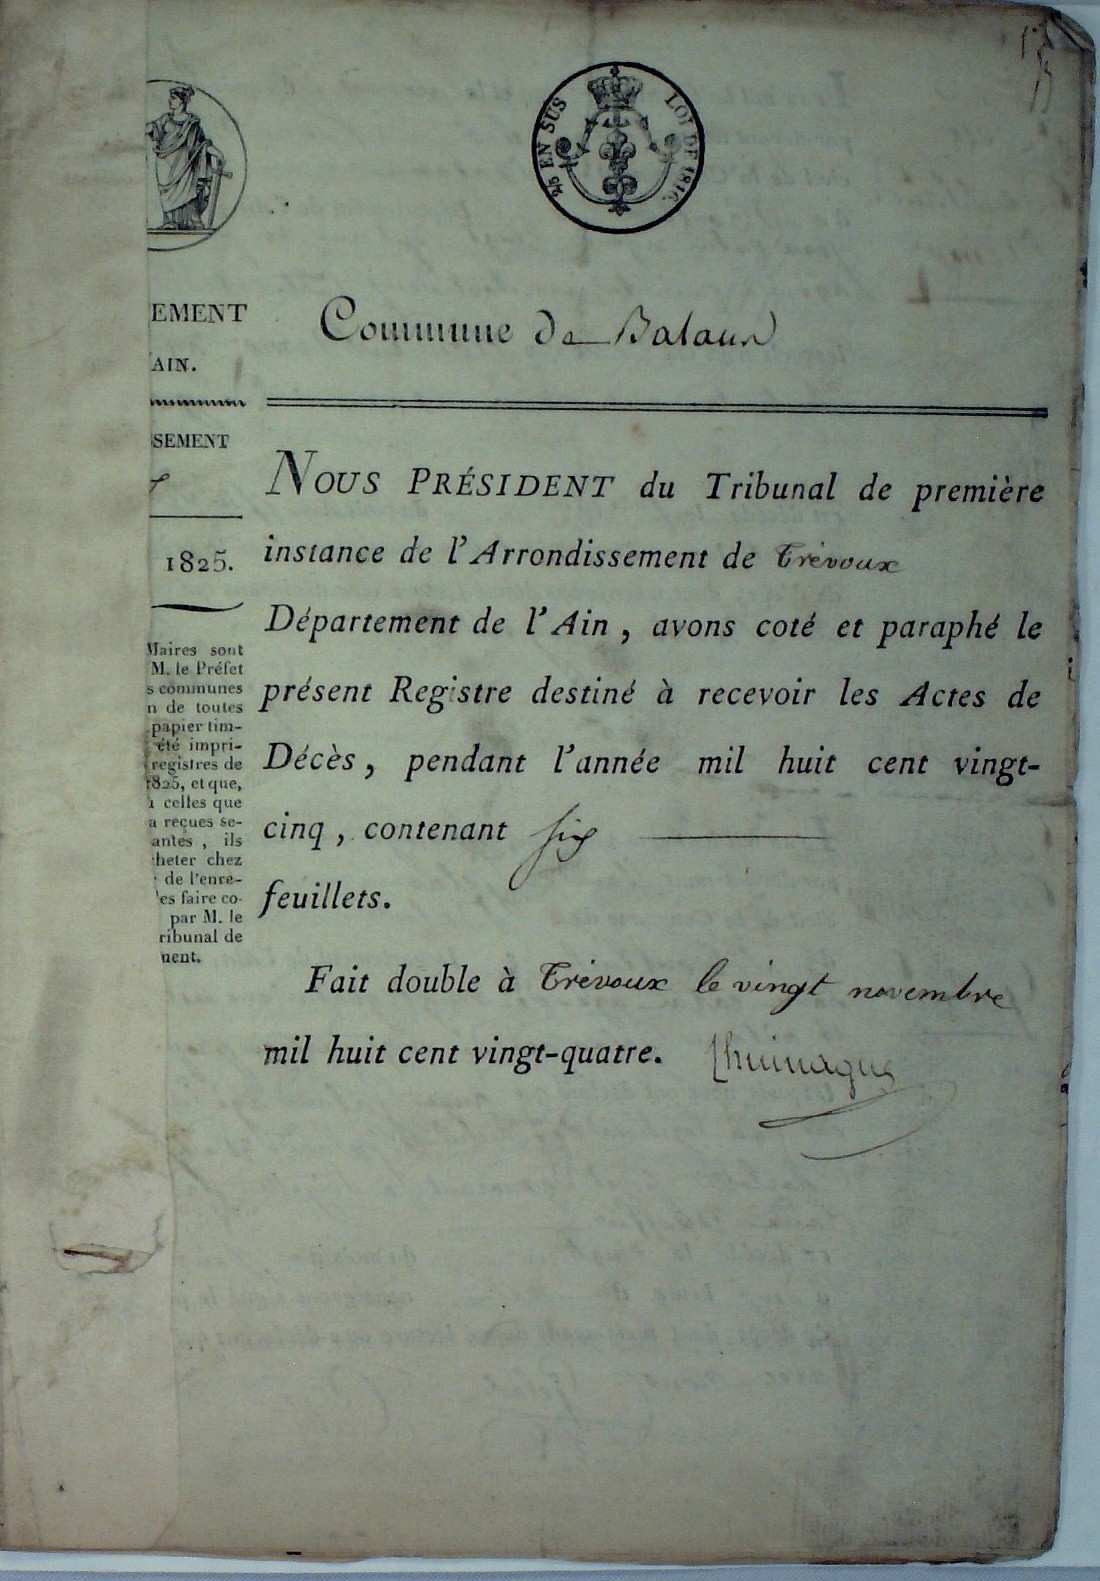 25 EN SUS LOI DE 1816.
EMENT
AIN.
SEMENT
1825.
Maires sont
M. le Préfet
s communes
n de toutes
papier tim-
été impri-
registres de
1825, et que,
à celles que
a reçues se-
antes, ils
heter chez
de l'enre-
les faire co-
par M. le
ribunal de
ment.
Commune de Balaun
NOUS PRÉSIDENT du Tribunal de première
instance de l'Arrondissement de Trévoux
Département de l'Ain, avons coté et paraphé le
présent Registre destiné à recevoir les Actes de
Décès, pendant l'année mil huit cent vingt-
cinq, contenant six
feuillets.
Fait double à Trévoux le vingt novembre
mil huit cent vingt-quatre.